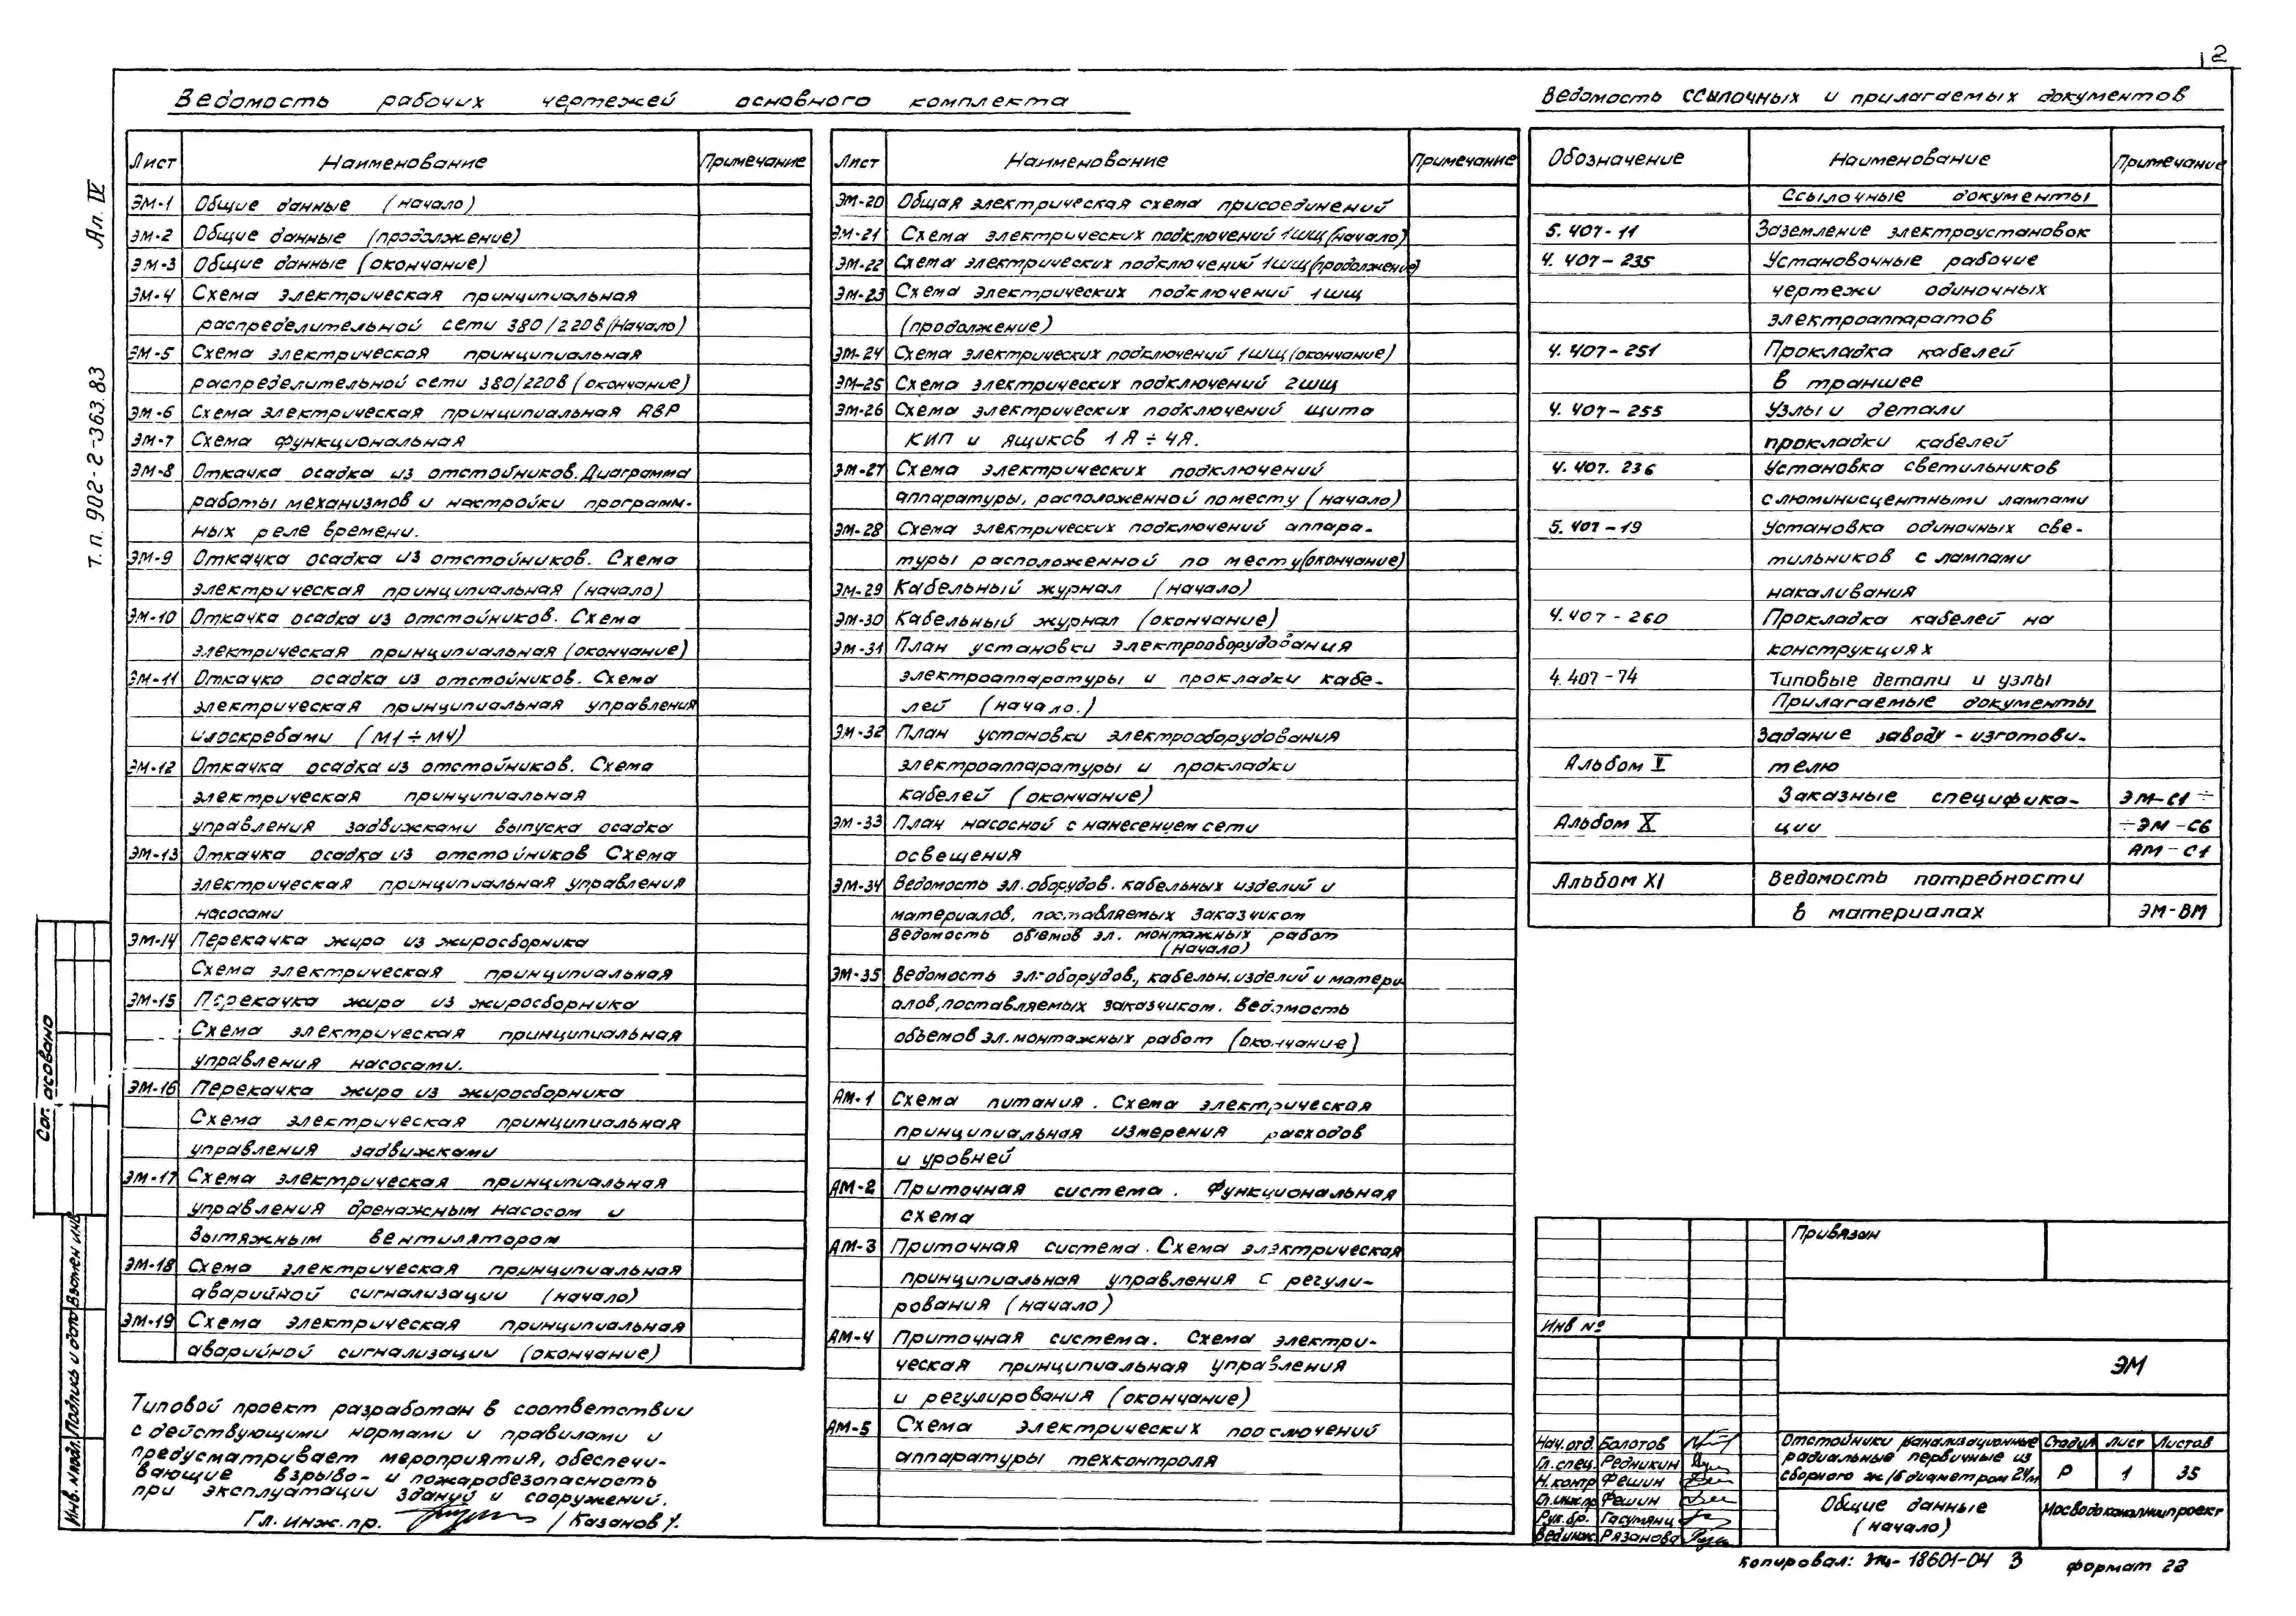 2
Ведомость рабочих чертежей основного комплекта
Лист Наименование Примечание
ЭМ-1 Общие данные (начало)
ЭМ-2 Общие данные (продолжение)
ЭМ-3 Общие данные (окончание)
ЭМ-4 Схема электрическая принципиальная
распределительной сети 380/220в (Начало)
ЭМ-5 Схема электрическая принципиальная
распределительной сети 380/220в (окончание)
ЭМ-6 Схема электрическая принципиальная АВР
ЭМ-7 Схема функциональная
ЭМ-8 Откачка осадка из отстойников. Диаграмма
работы механизмов и настройки программ-
ных реле времени.
ЭМ-9 Откачка осадка из отстойников. Схема
электрическая принципиальная (начало)
ЭМ-10 Откачка осадка из отстойников. Схема
электрическая принципиальная (окончание)
ЭМ-11 Откачка осадка из отстойников. Схема
электрическая принципиальная управления
илоскребами (М1÷М4)
ЭМ-12 Откачка осадка из отстойников. Схема
электрическая принципиальная
управления задвижками выпуска осадка
ЭМ-13 Откачка осадка из отстойников Схема
электрическая принципиальная управления
насосами
ЭМ-14 Перекачка жира из жиросборника
Схема электрическая принципиальная
ЭМ-15 Перекачка жира из жиросборника
Схема электрическая принципиальная
управления насосами.
ЭМ-16 Перекачка жира из жиросборника
Схема электрическая принципиальная
управления задвижками
ЭМ-17 Схема электрическая принципиальная
управления дренажным насосом и
вытяжным вентилятором
ЭМ-18 Схема электрическая принципиальная
аварийной сигнализации (начало)
ЭМ-19 Схема электрическая принципиальная
аварийной сигнализации (окончание)
Типовой проект разработан в соответствии
с действующими нормами и правилами и
предусматривает мероприятия, обеспечи-
вающие взрыво- и пожаробезопасность
при эксплуатации зданий и сооружений.
Гл. инж. пр. /Казанов
Лист Наименование Примечание
ЭМ-20 Общая электрическая схема присоединений
ЭМ-21 Схема электрических подключений 1ШЩ (начало)
ЭМ-22 Схема электрических подключений 1ШЩ (продолжение)
ЭМ-23 Схема электрических подключений 1ШЩ
(продолжение)
ЭМ-24 Схема электрических подключений 1ШЩ (окончание)
ЭМ-25 Схема электрических подключений 2ШЩ
ЭМ-26 Схема электрических подключений щита
КИП и ящиков 1Я÷4Я.
ЭМ-27 Схема электрических подключений
аппаратуры, расположенной по месту (начало)
ЭМ-28 Схема электрических подключений аппара-
туры расположенной по месту (окончание)
ЭМ-29 Кабельный журнал (начало)
ЭМ-30 Кабельный журнал (окончание)
ЭМ-31 План установки электрооборудования
электроаппаратуры и прокладки кабе-
лей (начало.)
ЭМ-32 План установки электрооборудования
электроаппаратуры и прокладки
кабелей (окончание)
ЭМ-33 План насосной с нанесением сети
освещения
ЭМ-34 Ведомость эл. оборудов. кабельных изделий и
материалов, поставляемых заказчиком
Ведомость объемов эл. монтажных работ
(начало)
ЭМ-35 Ведомость эл. оборудов., кабельн. изделий и матери
алов, поставляемых заказчиком. Ведомость
объемов эл. монтажных работ (окончание)
АМ-1 Схема питания. Схема электрическая
принципиальная измерения расходов
и уровней
АМ-2 Приточная система. Функциональная
схема
АМ-3 Приточная система. Схема электрическая
принципиальная управления с регули-
рования (начало)
АМ-4 Приточная система. Схема электри-
ческая принципиальная управления
и регулирования (окончание)
АМ-5 Схема электрических подключений
аппаратуры техконтроля
Ведомость ссылочных и прилагаемых документов
Обозначение Наименование Примечание
Ссылочные документы
5.407-11 Заземление электроустановок
4.407-235 Установочные рабочие
чертежи одиночных
электроаппаратов
4.407-251 Прокладка кабелей
в траншее
4.407-255 Узлы и детали
прокладки кабелей
4.407.236 Установка светильников
с люминисцентными лампами
5.407-19 Установка одиночных све-
тильников с лампами
накаливания
4.407-260 Прокладка кабелей на
конструкциях
4.407-74 Типовые детали и узлы
Прилагаемые документы
Задание заводу-изготови-
Альбом V телю
Заказные специфика- ЭМ-С1÷
Альбом X ции ÷ЭМ-С6
АМ-С1
Альбом XI Ведомость потребности
в материалах ЭМ-ВМ
Привязан
Инв №
ЭМ
Нач. отд. Болотов
Гл. спец. Редникин
Н. контр Фешин
Гл. инж. пр Фешин
Рук. бр. Гасумянц
Вед. инж. Рязанова
Отстойники канализационные
радиальные первичные из
сборного ж/б диаметром 24м
Стадия Лист Листов
Р 1 35
Общие данные
(начало)
Мосводоканалниипроект
Копировал: 18601-04 3 формат 22
т.п. 902-2-363.83 Ал. IV
Согласовано
Инв. № подл. Подпись и дата Взамен инв